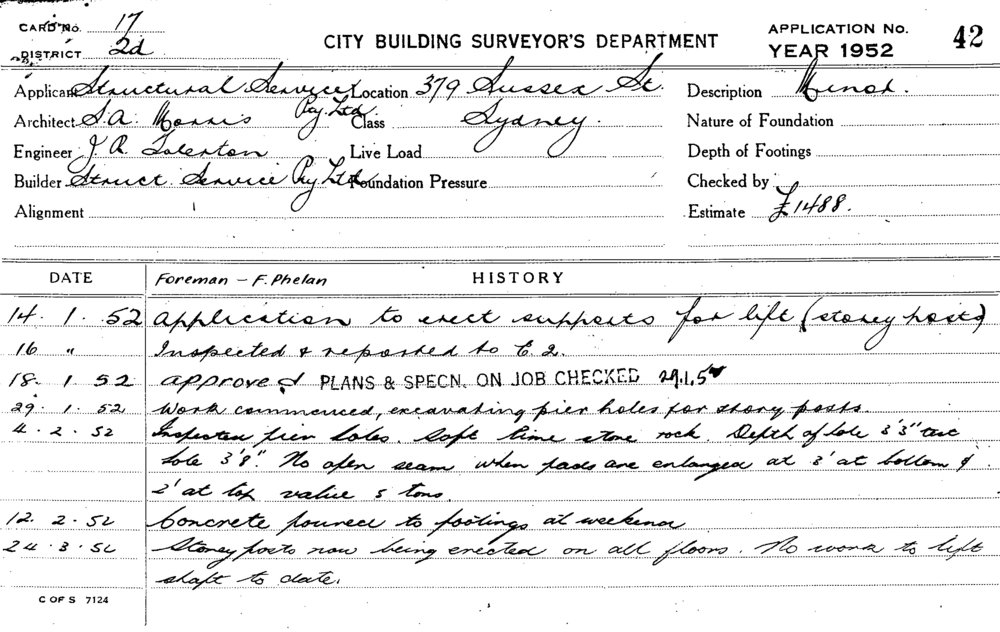 CARD No. 17
DISTRICT 2d
CITY BUILDING SURVEYOR'S DEPARTMENT
APPLICATION No. 42
YEAR 1952
Applicant Structural Service Pty. Ltd. Location 379 Sussex St. Description Minor.
Architect S.A. Morris Class Sydney. Nature of Foundation
Engineer J. R. Live Load Depth of Footings
Builder Struct. Service Pty Ltd. Foundation Pressure Checked by
Alignment Estimate £1488.
DATE Foreman - F. Phelan HISTORY
14. 1. 52 Application to erect supports for lift (storey posts)
16 " Inspected & reported to E. 2.
18. 1. 52 approved PLANS & SPECN. ON JOB CHECKED 29.1.5
29. 1. 52 Work commenced, excavating pier holes for story posts.
4. 2. 52 Inspected pier holes. Soft lime stone rock. Depth of hole 3'3" test
hole 3'8". No open seam when pads are enlarged at 3' at bottom &
2' at top value 5 tons.
12. 2. 52 Concrete poured to footings at weekend
24. 3. 52 Storey posts now being erected on all floors. No work to lift
shaft to date.
C OF S 7124